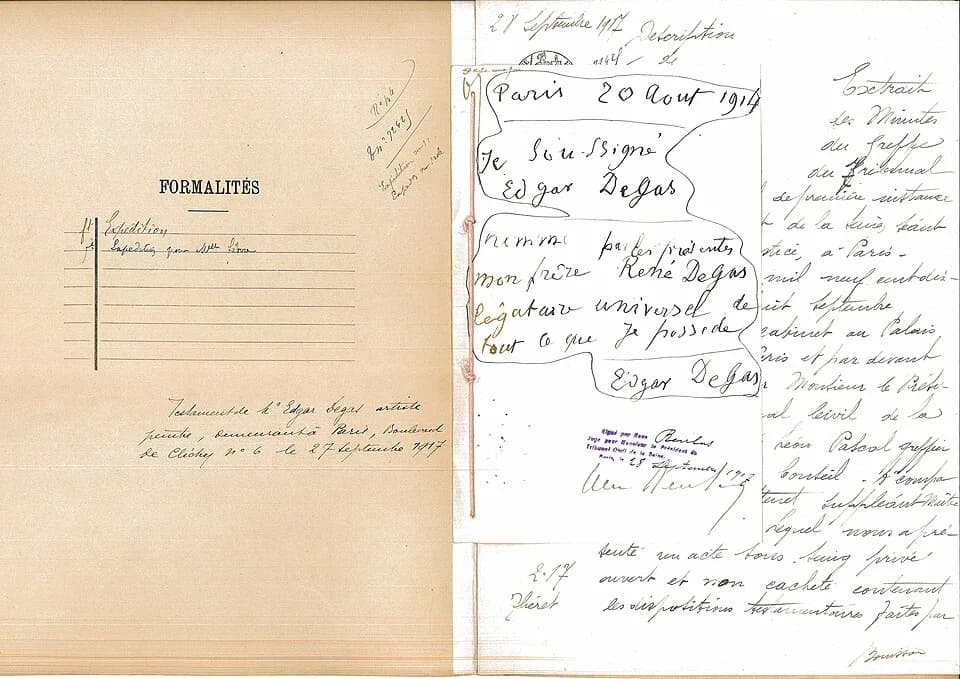 N° 46
FORMALITÉS
Expedition
Expedition pour Melle
Testament de Mr Edgar Degas artiste
peintre, demeurant à Paris, Boulevard
de Clichy n° 6 le 27 septembre 1917
28 Septembre 1917
Description
Paris 20 Aout 1914
Je Sou-Signé
Edgar DeGas
nomme par les présentes
mon frère René DeGas
légataire universel de
tout ce que Je possede
Edgar DeGas
Signé par Nous
Juge pour Monsieur le Président du
Tribunal Civil de la Seine.
Paris, le 28 Septembre 1917
Extrait
des Minutes
du Greffe
du Tribunal
de première instance
de la Seine, séant
à Paris.
mil neuf cent dix-
septembre
cabinet au Palais
et par devant
Monsieur le Prési-
al Civil de la
Léon Pascal greffier
Conseil. A compa
suppléant Maître
lequel nous a pré-
senté un acte sous seing privé
ouvert et non cacheté contenant
les dispositions testamentaires faites par
2.17
Théret